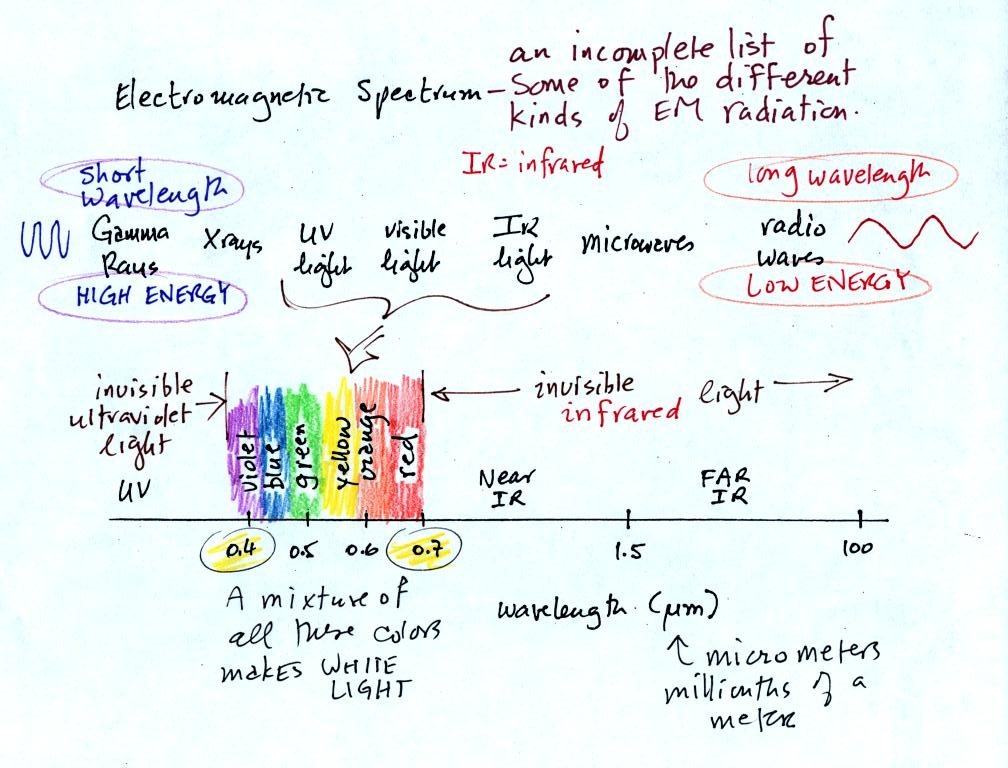 Electromagnetic Spectrum – an incomplete list of
some of the different
kinds of EM radiation.
IR = infrared
short
wavelength
long wavelength
Gamma
Rays
Xrays
UV
light
visible
light
IR
light
microwaves
radio
waves
HIGH ENERGY
LOW ENERGY
invisible
ultraviolet
light
UV
violet
blue
green
yellow
orange
red
invisible
infrared light
Near
IR
FAR
IR
0.4 0.5 0.6 0.7 1.5 100
A mixture of
all these colors
makes WHITE
LIGHT
wavelength (µm)
↑ micrometers
millionths of a
meter